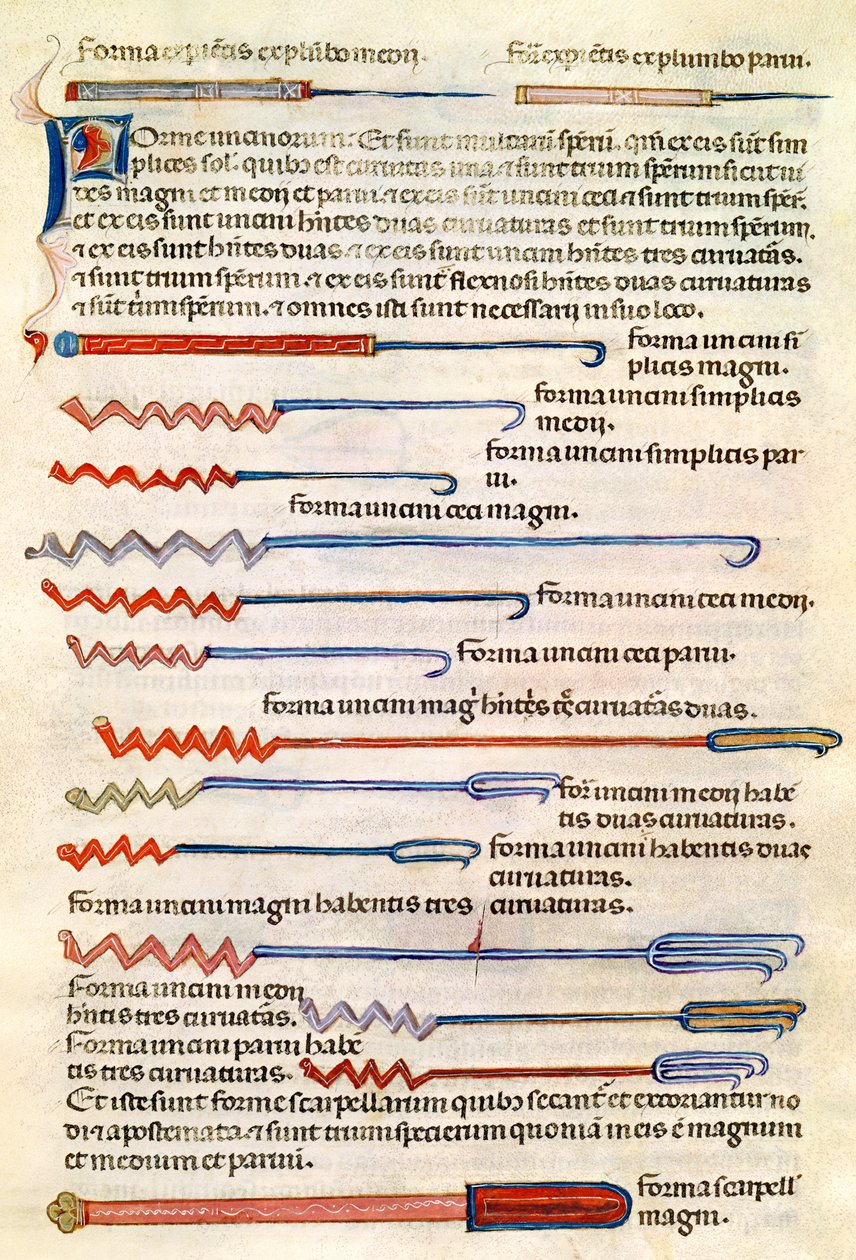 Forma expiẽtis explũbo medij.
For̃ expiẽtis explumbo parui.
Forme uncinorum: Et sunt multarũ sperũ. qm̃ ex eis sũt sim
plices sol. quibꝫ est curuitas una. ⁊ sunt trium sperum sicut ui
des magni et medij et parui. ⁊ ex eis sũt uncini ceci ⁊ sunt trium sper̃.
et ex eis sunt uncini hñtes duas curuaturas et sunt trium sperum.
⁊ ex eis sunt hñtes duas. ⁊ ex eis sunt uncini hñtes tres curuatãs.
⁊ sunt trium sperum. ⁊ ex eis sunt flexuosi hñtes duas curuaturas
⁊ sũt trium sperum. ⁊ omnes isti sunt necessarij in suo loco.
Forma uncini si
plicis magni.
forma uncini simplicis
medij.
forma uncini simplicis par
ui.
forma uncini ceci magni.
forma uncini ceci medij.
Forma uncini ceci parui.
forma uncini mag hñtes curuatãs duas.
for̃ uncini medij habẽ
tis duas curuaturas.
forma uncini habentis duas
curuaturas.
forma uncini magni habentis tres curuaturas.
Forma uncini medij
hñtis tres curuatãs.
Forma uncini parui habẽ
tis tres curuaturas.
Et iste sunt forme scarpellarum quibꝫ secant̃ et excoriantur no
di ⁊ apostemata. ⁊ sunt trium specierum quoniã in eis ẽ magnum
et medium et paruũ.
forma scarpell
magni.